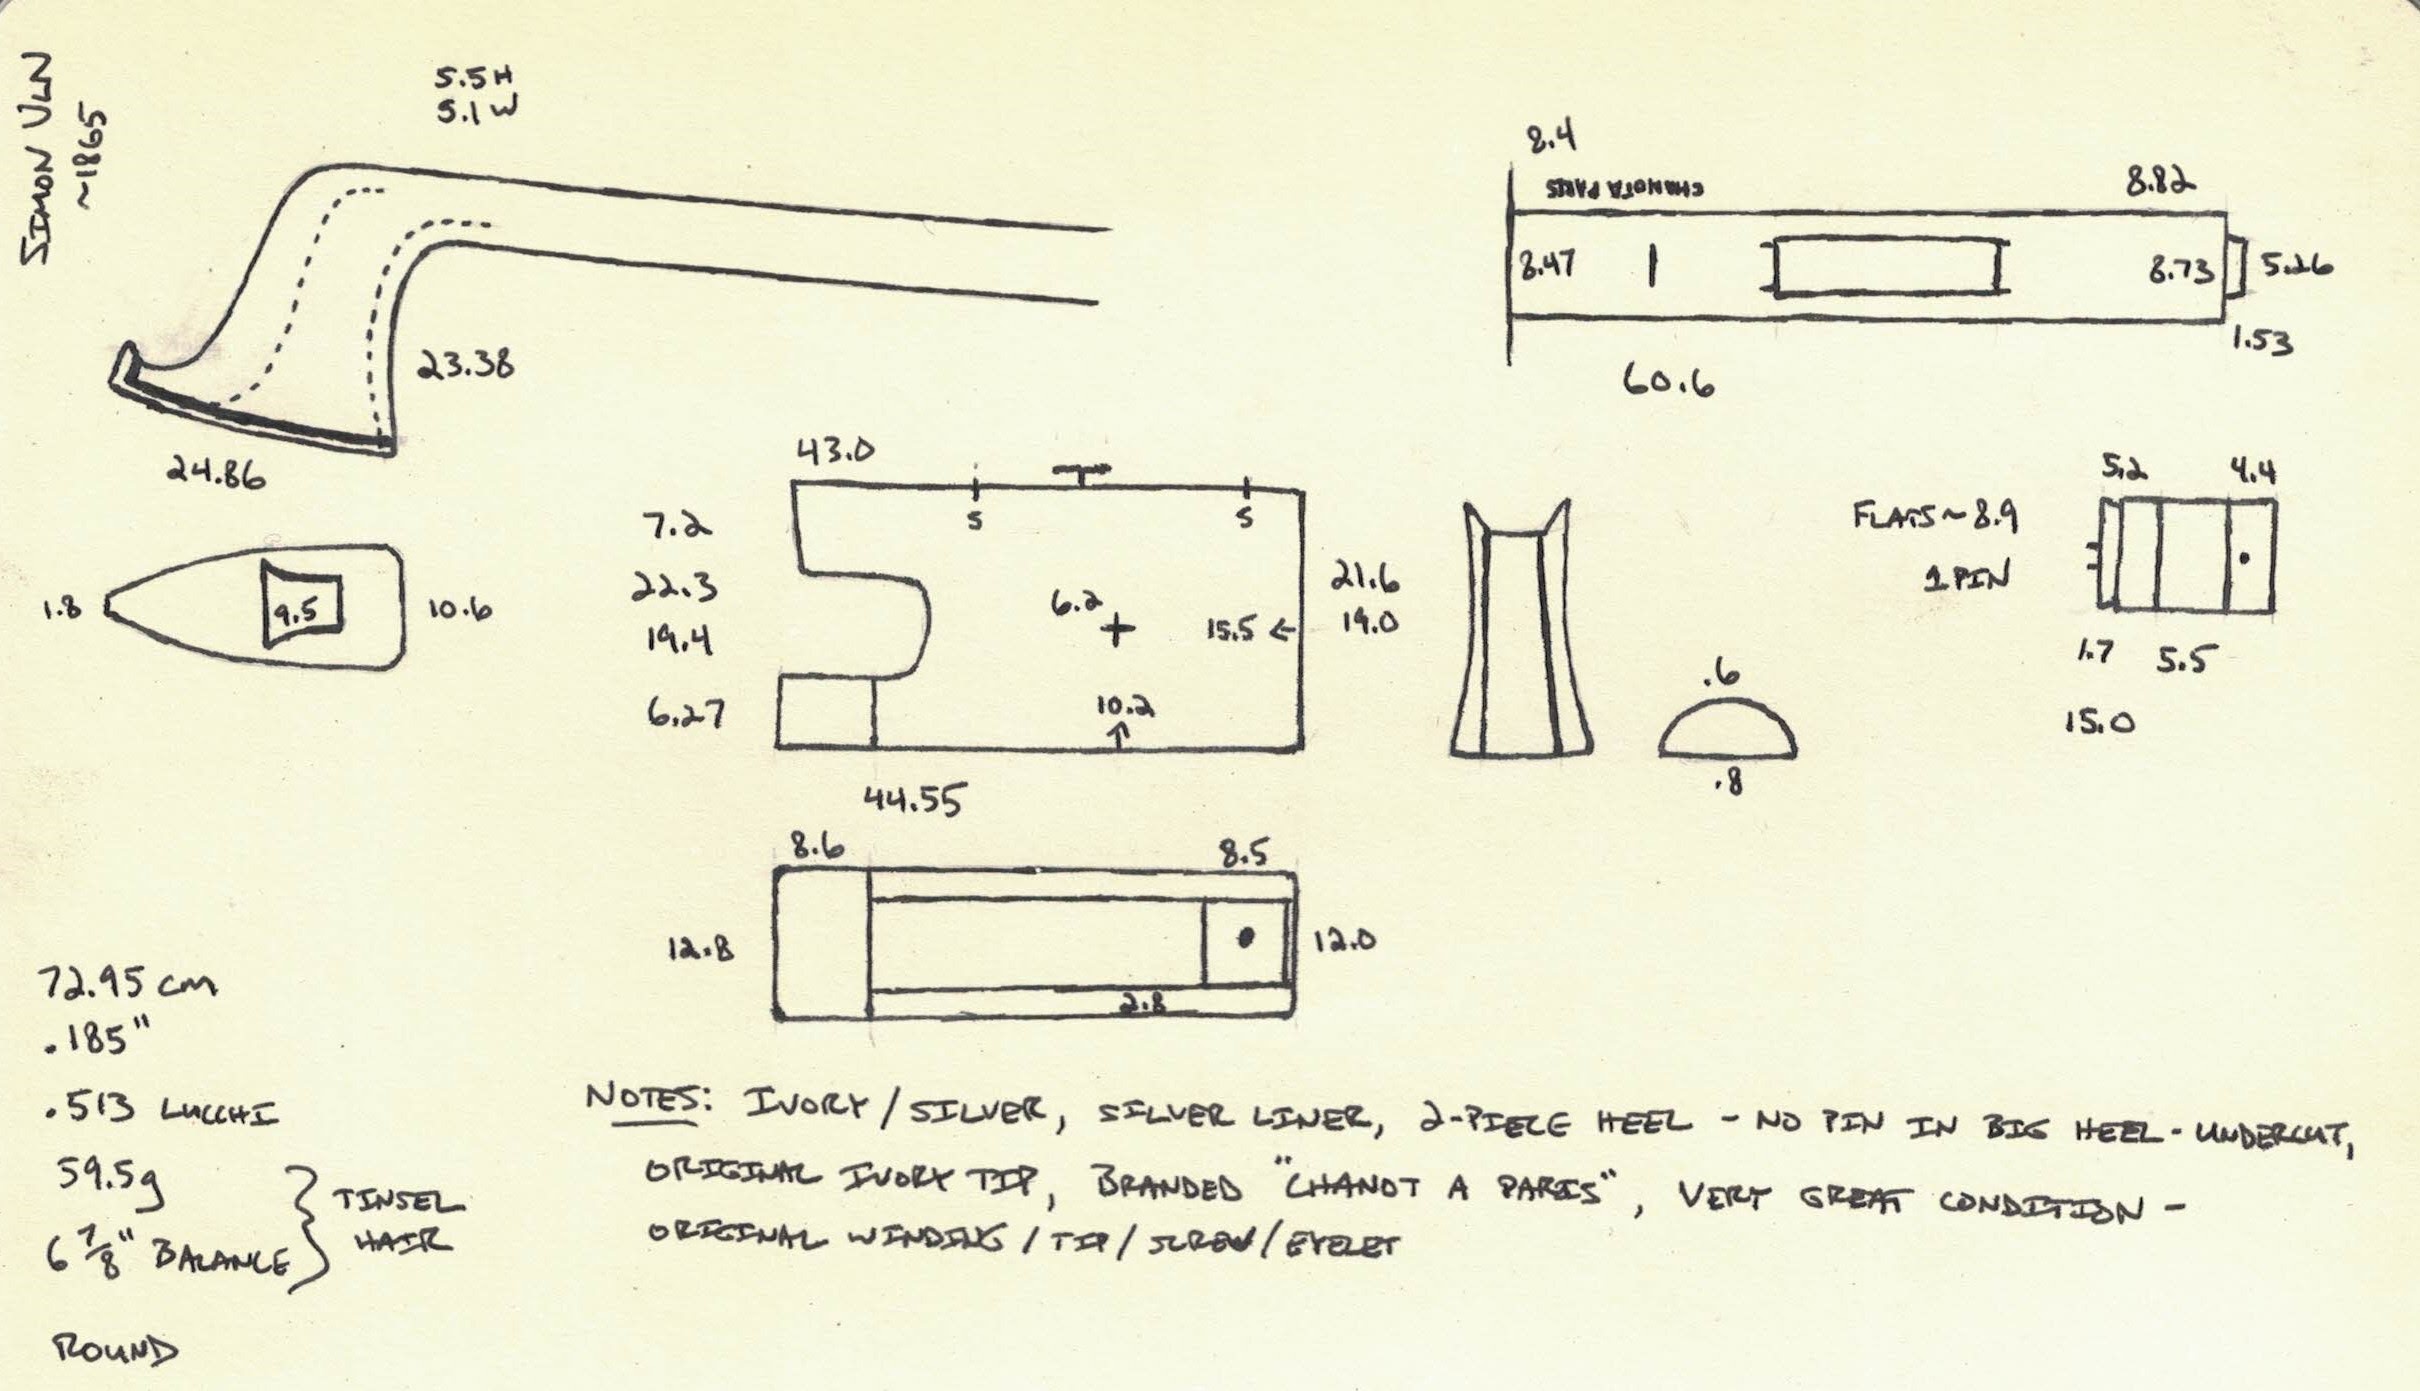 SIMON VLN
~1865
5.5H
5.1W
23.38
24.86
1.8
9.5
10.6
8.4
CHANOT A PARIS
8.82
8.47
8.73
5.26
1.53
60.6
43.0
5
5
7.2
22.3
19.4
6.27
6.2
15.5 ←
10.2
↑
21.6
19.0
44.55
.6
.8
FLATS ~ 8.9
1 PIN
5.2
4.4
1.7
5.5
15.0
8.6
8.5
12.8
12.0
2.8
72.95 cm
.185"
.513 LUCCHI
59.5g
6 7/8" BALANCE
TINSEL
HAIR
ROUND
NOTES: IVORY / SILVER, SILVER LINER, 2-PIECE HEEL - NO PIN IN BIG HEEL - UNDERCUT,
ORIGINAL IVORY TIP, BRANDED "CHANOT A PARIS", VERY GREAT CONDITION -
ORIGINAL WINDING / TIP / SCREW / EYELET